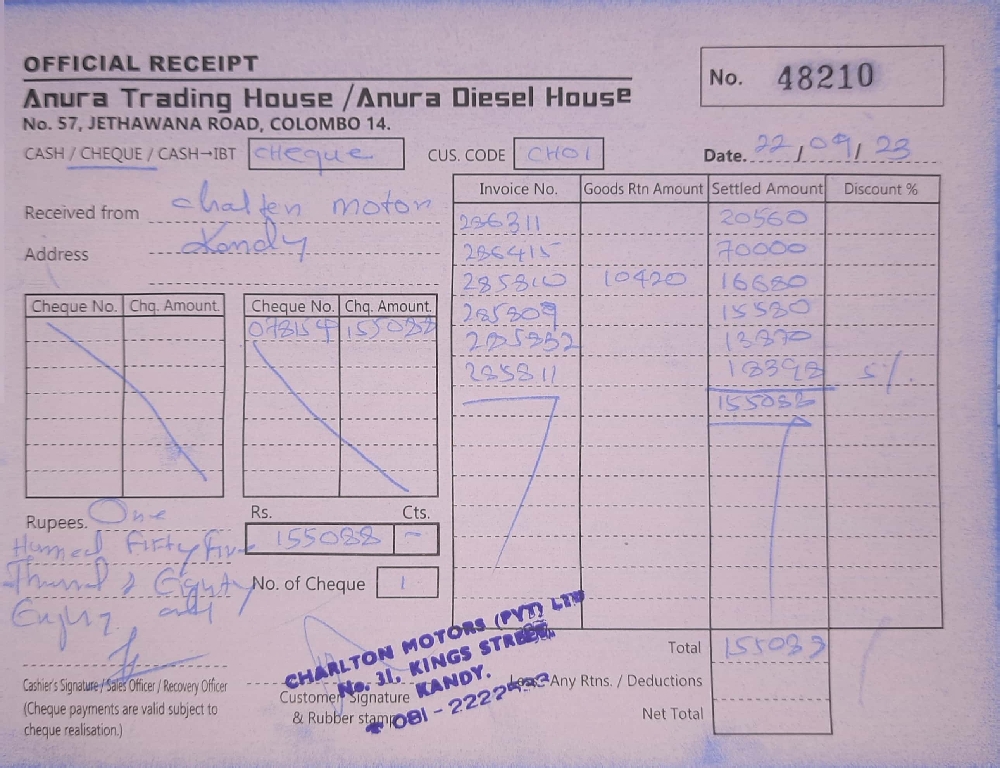 OFFICIAL RECEIPT
No. 48210
Anura Trading House /Anura Diesel House
No. 57, JETHAWANA ROAD, COLOMBO 14.
CASH / CHEQUE / CASH→IBT cheque CUS. CODE CH01 Date. 22/09/23
Received from motor
Address Kandy
Invoice No. Goods Rtn Amount Settled Amount Discount %
286311 20560
286415 70000
285810 10420 16680
285809 15580
285832 13870
285811 18398 5%
155088
Cheque No. Chq. Amount. Cheque No. Chq. Amount.
078154 155088
Rupees. One
Fifty Five
Rs. Cts.
155088 -
No. of Cheque 1
only
CHARLTON MOTORS (PVT) LTD
No. 31, KINGS STREET,
KANDY.
081 - 2222
Cashier's Signature / Sales Officer / Recovery Officer
(Cheque payments are valid subject to
cheque realisation.)
Customer Signature
& Rubber stamp
Total 155088
Less Any Rtns. / Deductions
Net Total